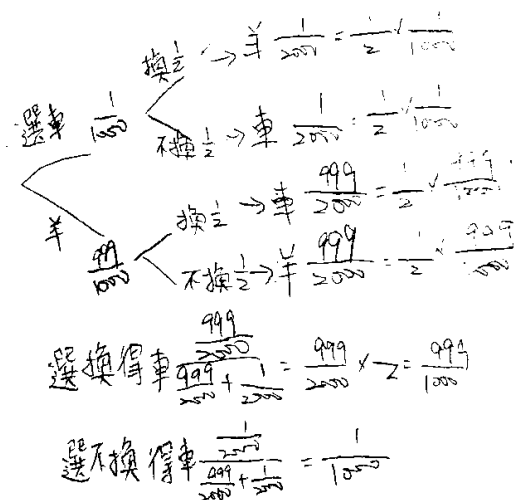 換1/2 → 羊 1/2000 = 1/2 × 1/1000
選車 1/1000
不換1/2 → 車 1/2000 = 1/2 × 1/1000
換1/2 → 車 999/2000 = 1/2 × 999/1000
羊 999/1000
不換1/2 → 羊 999/2000 = 1/2 × 999/1000
選換得車 (999/2000)/(999/2000 + 1/2000) = 999/2000 × 2 = 999/1000
選不換得車 (1/2000)/(999/2000 + 1/2000) = 1/1000